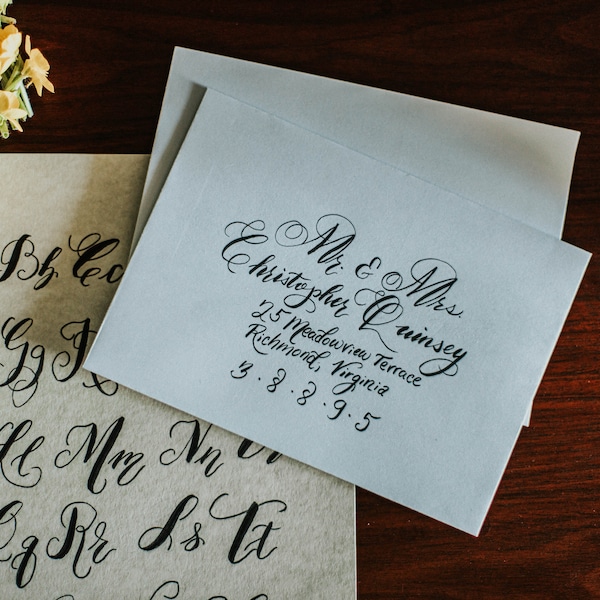 Mr. & Mrs.
Christopher Quinsey
25 Meadowview Terrace
Richmond, Virginia
3·8·8·9·5
Bb Cc
Gg
Mm Nn
Qq Rr Ss Tt